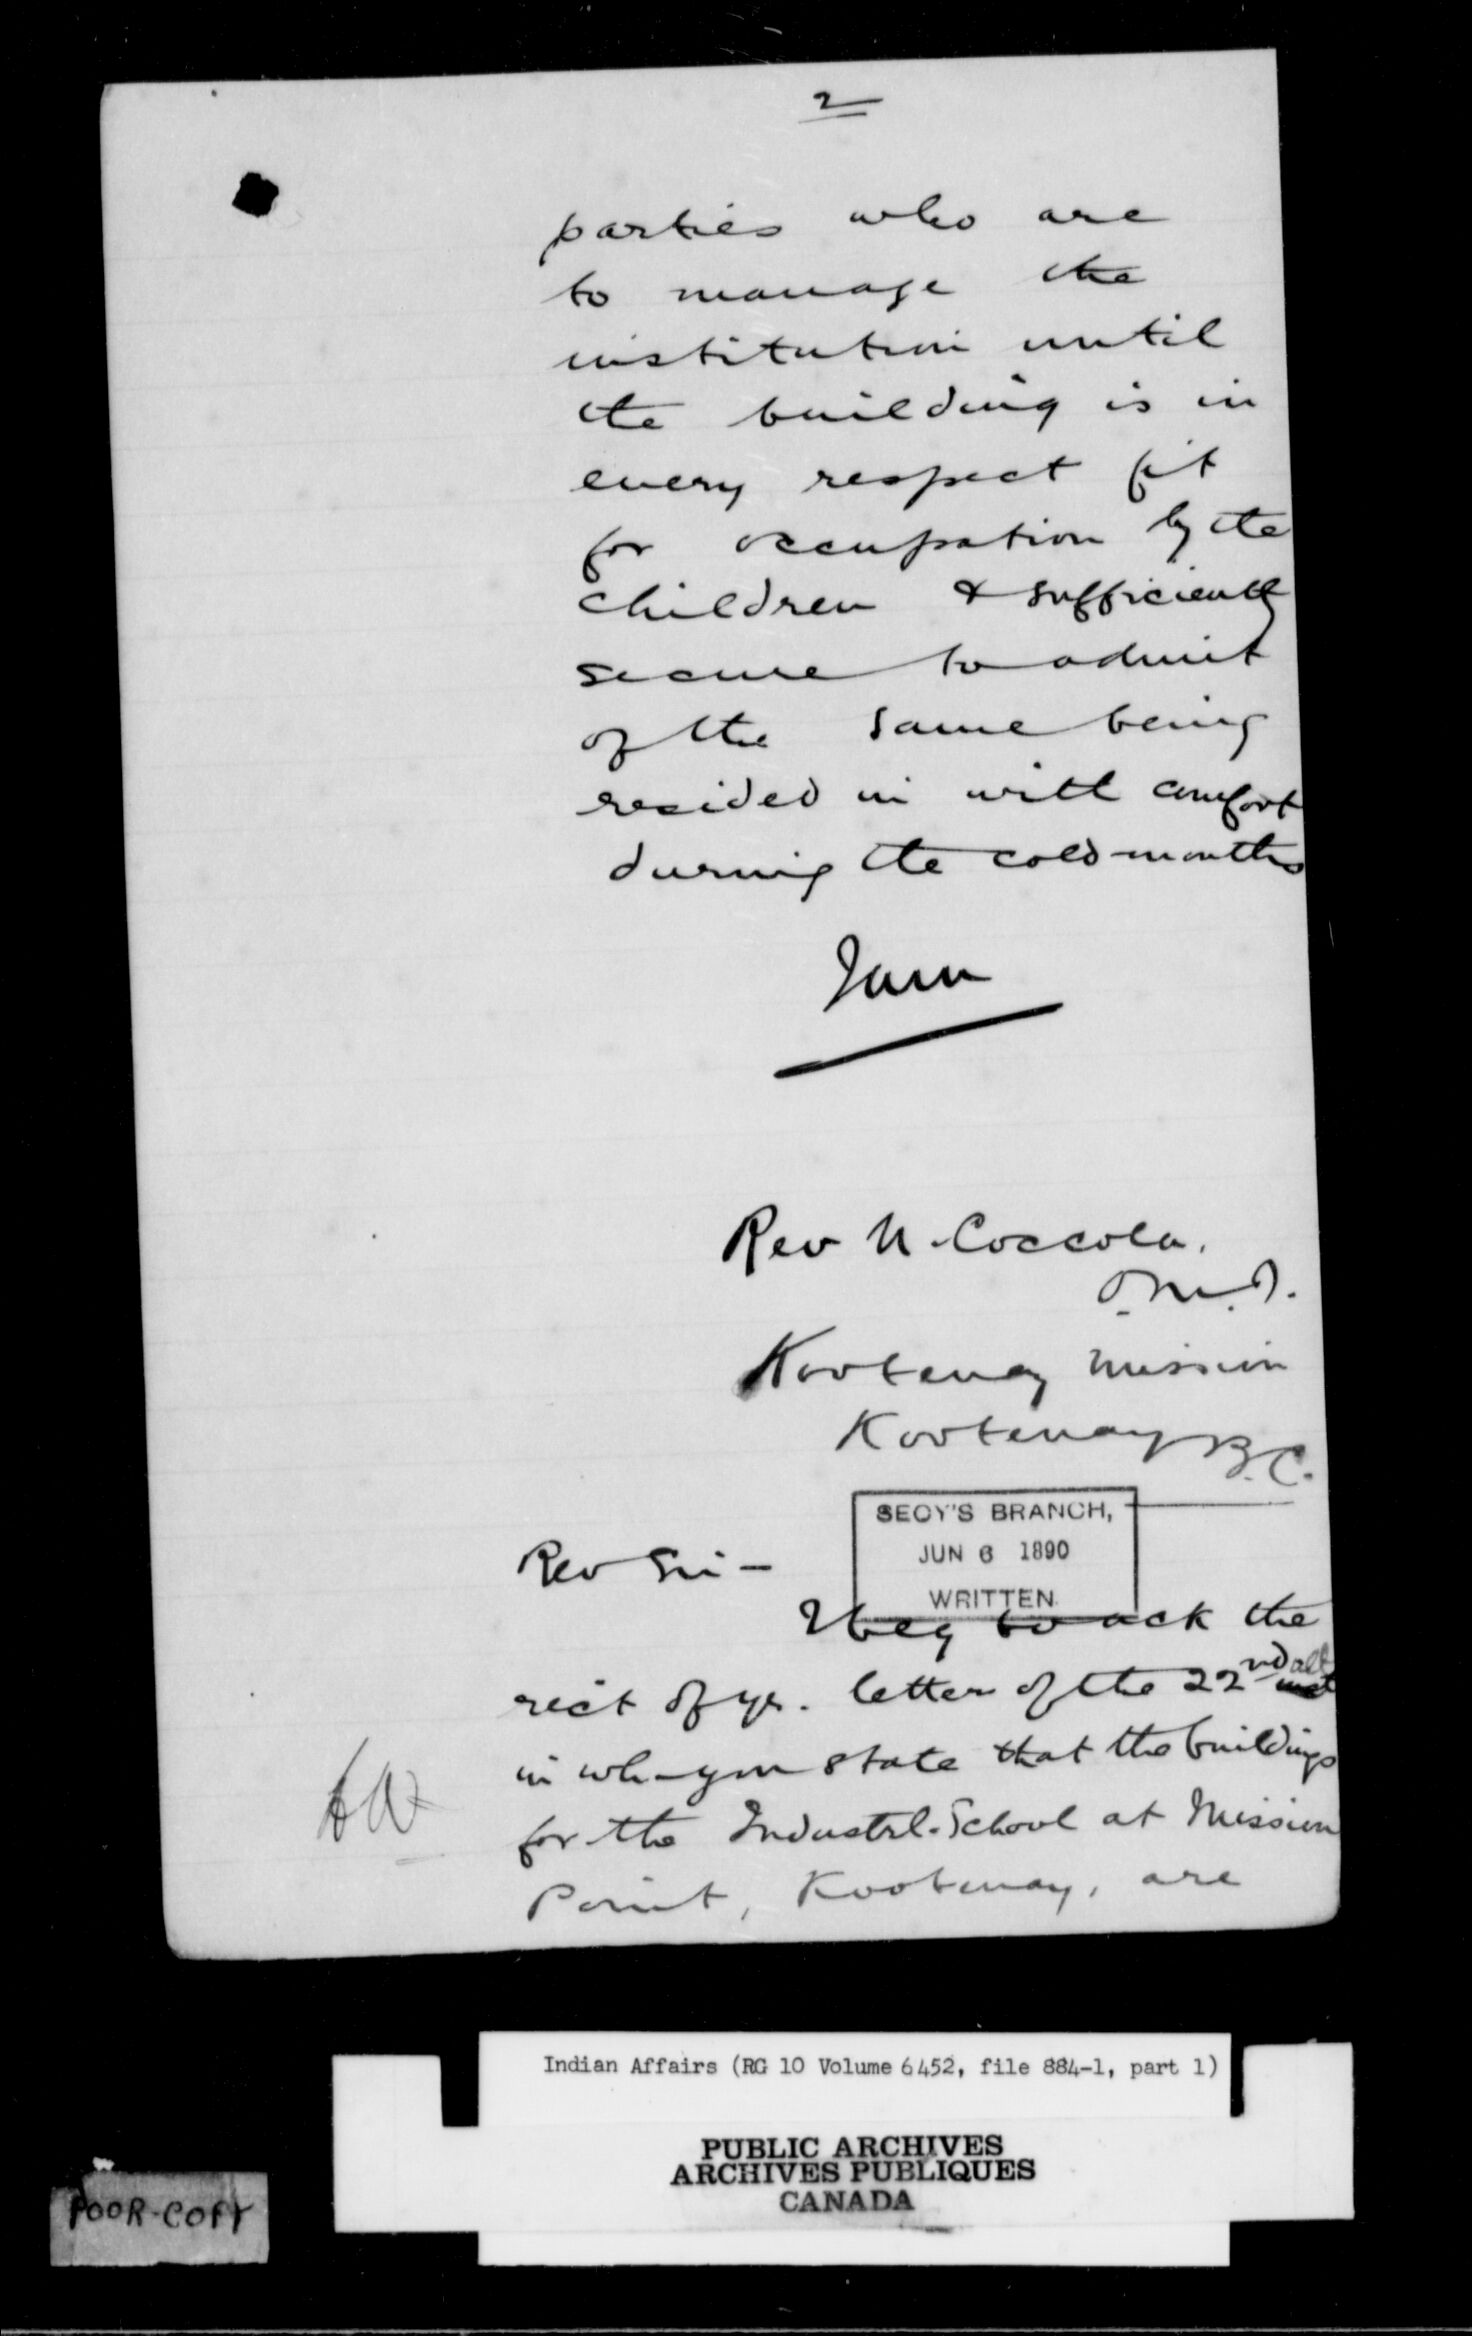 2
parties who are
to manage the
institution until
the building is in
every respect fit
for occupation by the
children & sufficiently
secure to admit
of the same being
resided in with comfort
during the cold months
I am
Rev N. Coccola.
O.M.I.
Kootenay Mission
Kootenay B.C.
SECY'S BRANCH,
JUN 6 1890
WRITTEN
Rev Sir -
I beg to ack the
rect of yr. letter of the 22nd ult
in wh you state that the buildings
for the Industrl. School at Mission
Point, Kootenay, are
Indian Affairs (RG 10 Volume 6452, file 884-1, part 1)
PUBLIC ARCHIVES
ARCHIVES PUBLIQUES
CANADA
POOR-COPY